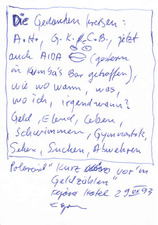 Die Gedanken kreisen:
A.Ho, G.K., C.B., jetzt
auch AIDA (gestern
in Kumba's Bar getroffen),
wie wo wann, was,
wo ich, irgendwann?
Geld, Elend, Leben,
Schwimmen, Gymnastik,
Sehen, Suchen, Abwehren
kurz vor'm
Geldzählen,
Hotel 29 93